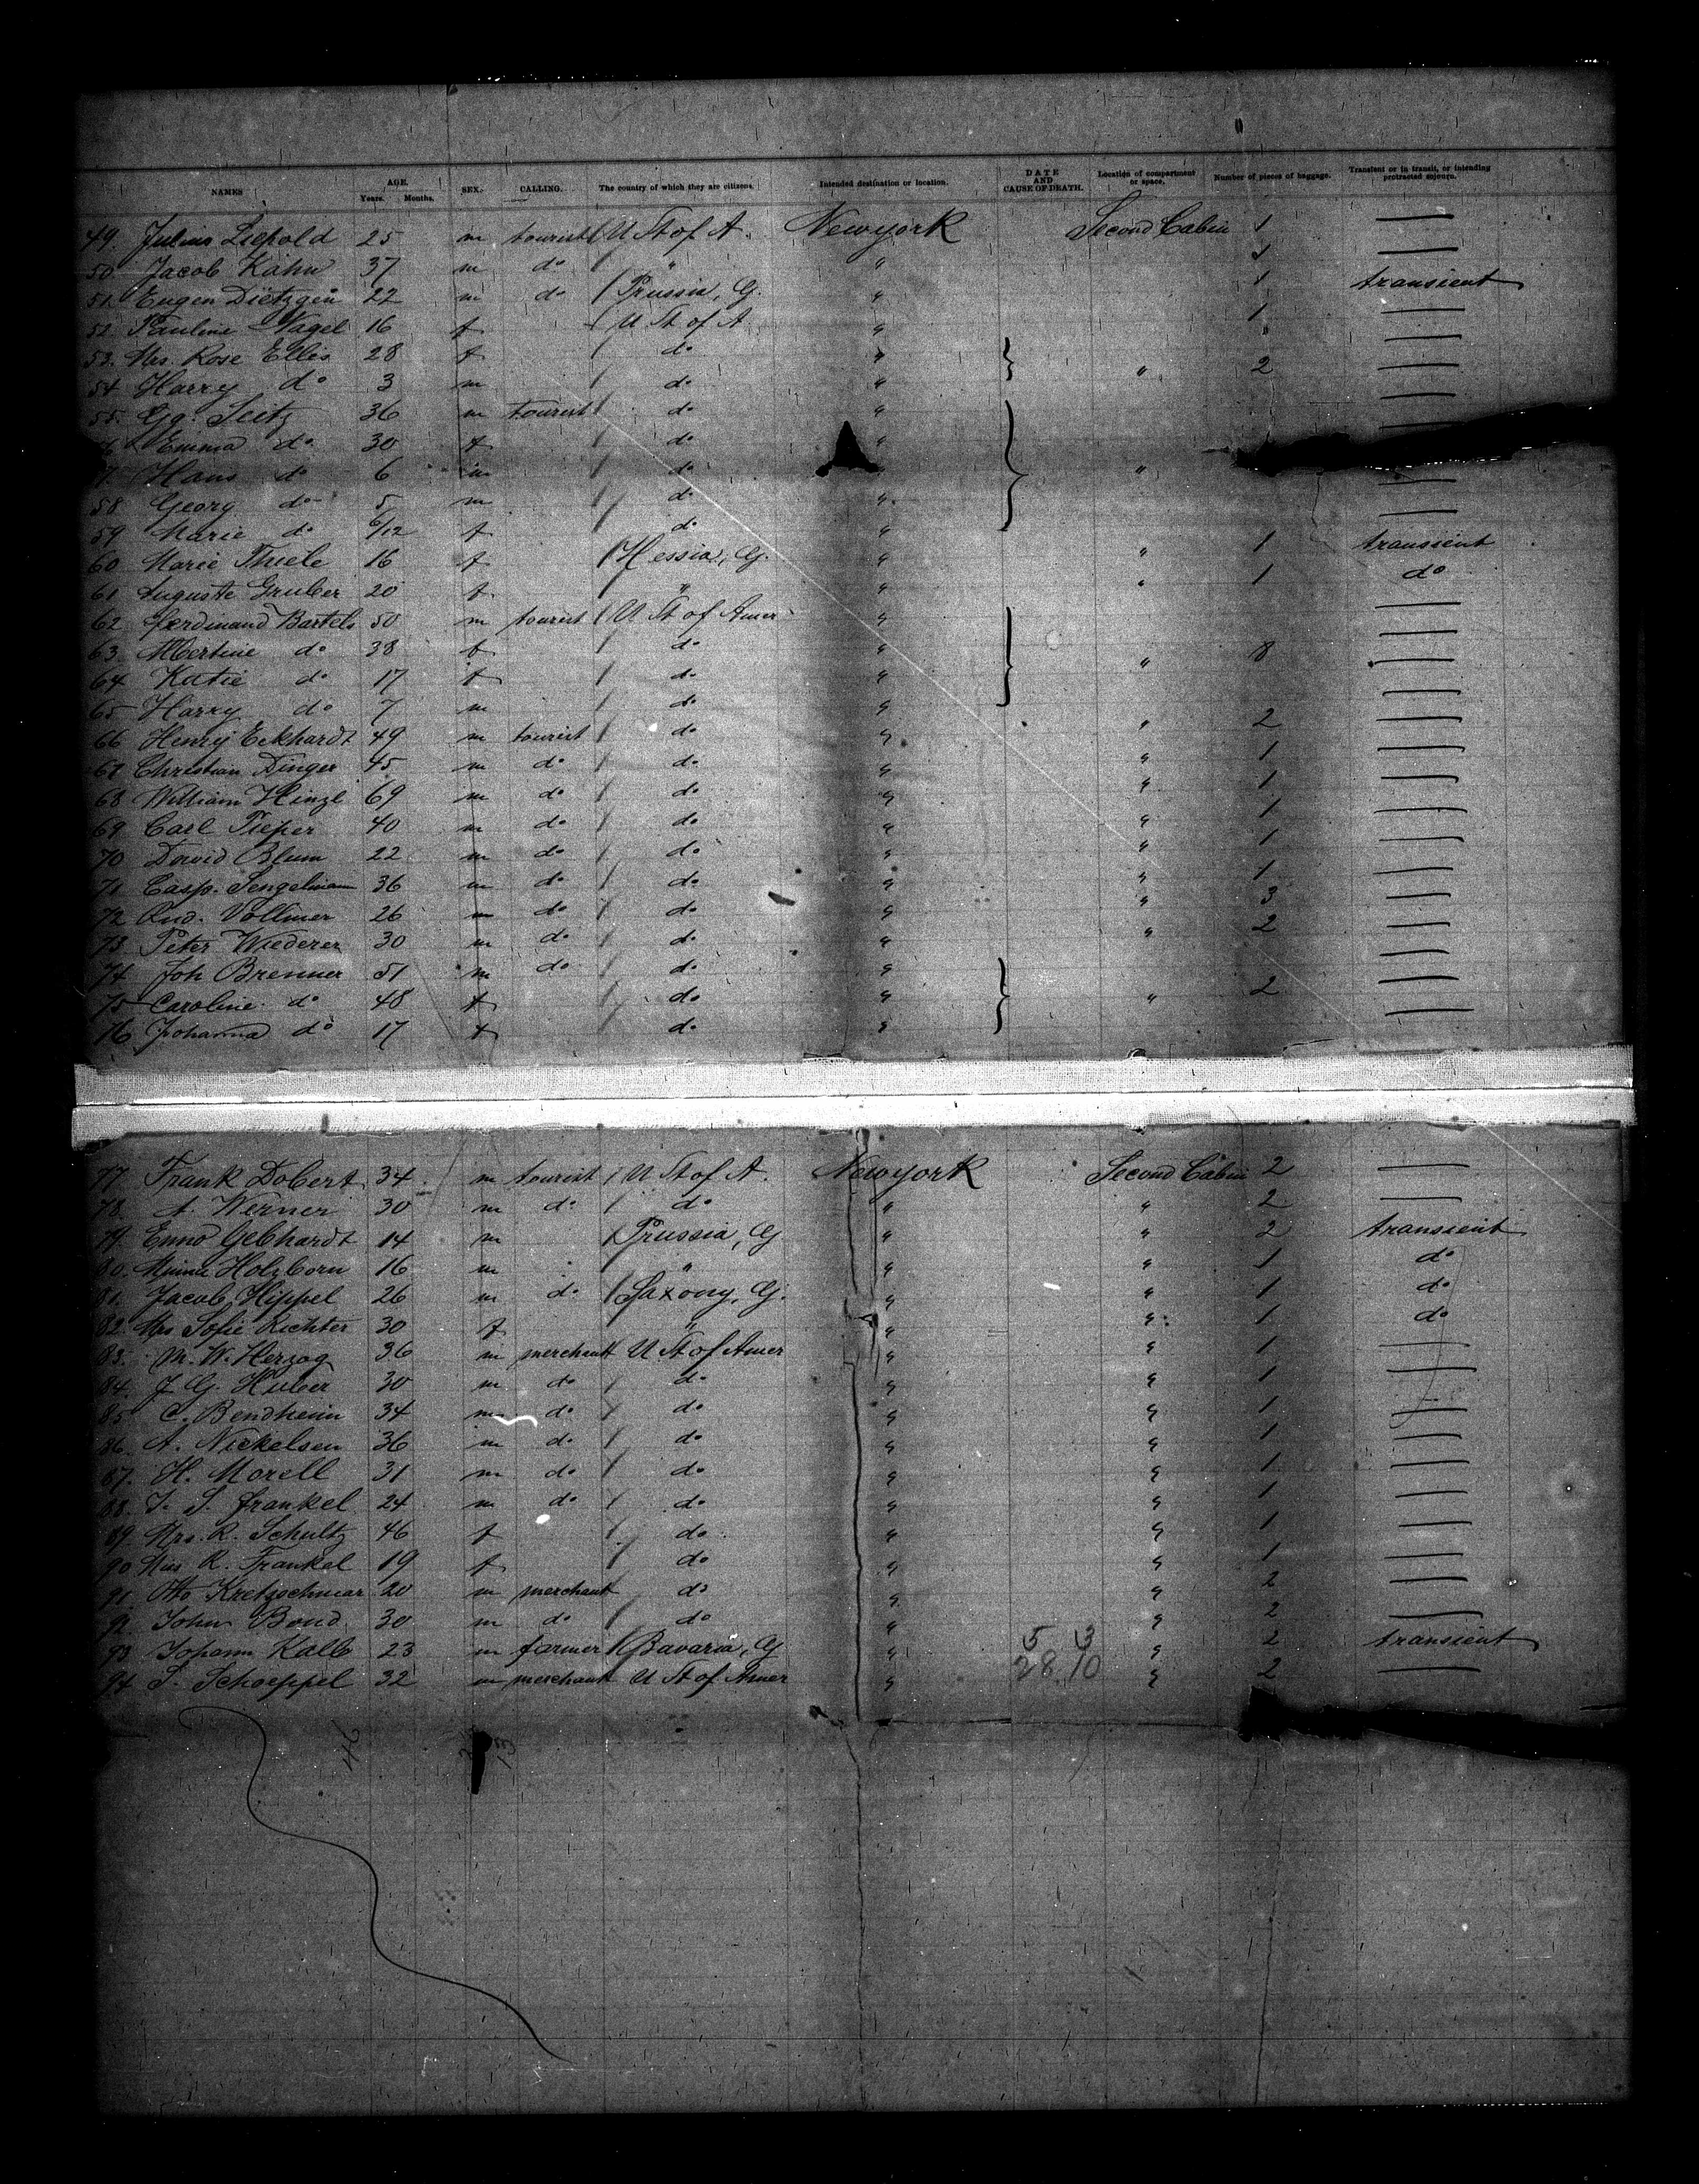 NAMES AGE. Years. Months. SEX. CALLING. The country of which they are citizens. Intended destination or location. DATE AND CAUSE OF DEATH. Location of compartment or space. Number of pieces of baggage. Transient or in transit, or intending protracted sojourn.
49. Julius Liepold 25 m tourist U St of A. Newyork Second Cabin 1 —
50 Jacob Kahn 37 m do " " 1 —
51. Eugen Dietzgen 22 m do Prussia, G. " 1 transient
52. Pauline Nagel 16 f U St of A " 1 —
53. Mrs. Rose Ellis 28 f do " " —
54 Harry do 3 m do " " 2 —
55. Gg. Seitz 36 m tourist do " —
56 Emma do 30 f do " —
57. Hans do 6 m do " "
58 Georg do 5 m do " —
59 Marie do 6/12 f do " —
60 Marie Thiele 16 f Hessia, G. " " 1 transient
61 Auguste Gruber 20 f " " " 1 do
62 Ferdinand Bartels 50 m tourist U St of Amer " —
63. Albertine do 38 f do " " 8 —
64 Katie do 17 f do " —
65 Harry do 7 m do " —
66 Henry Eckhardt 49 m tourist do " " 2 —
67 Christian Dinger 45 m do do " " 1 —
68 William Hinzl 69 m do do " " 1 —
69 Carl Pieper 40 m do do " " 1 —
70 David Blum 22 m do do " " 1 —
71 Casp. Sengelmann 36 m do do " " 1 —
72 Rud. Vollmer 26 m do do " " 3 —
73 Peter Wiederer 30 m do do " " 2 —
74 Joh Brenner 51 m do do " —
75 Caroline do 48 f do " " 2 —
76 Johanna do 17 f do " —
77 Frank Dobert 34 m tourist U St of A. Newyork Second Cabin 2 —
78. A. Werner 30 m do do " " 2 —
79 Enno Gebhardt 14 m Prussia, G " " 2 transient
80. Holzborn 16 m " " " 1 do
81. Jacob Hippel 26 m do Saxony, G. " " 1 do
82. Mrs Sofie Richter 30 f " " " 1 do
83. M. W. Herzog 36 m merchant U St of Amer " " 1 —
84. J. G. Huber 30 m do do " " 1 —
85 C. Bendheim 34 m do do " " 1 —
86. A. Nickelsen 36 m do do " " 1 —
87. H. Morell 31 m do do " " 1 —
88. S. Frankel 24 m do do " " 1 —
89. Mrs. R. Schultz 46 f do " " 1 —
90 Miss R. Frankel 19 f do " " 1 —
91. Otto Kretzschmar 20 m merchant do " " 2 —
92. John Bond 30 m do do " " 2 —
93 Johann Kalb 23 m farmer Bavaria, G " 5 13 " 2 transient
94 S. Schoeppel 32 m merchant U St of Amer " 28 10 " 2 —
46 13